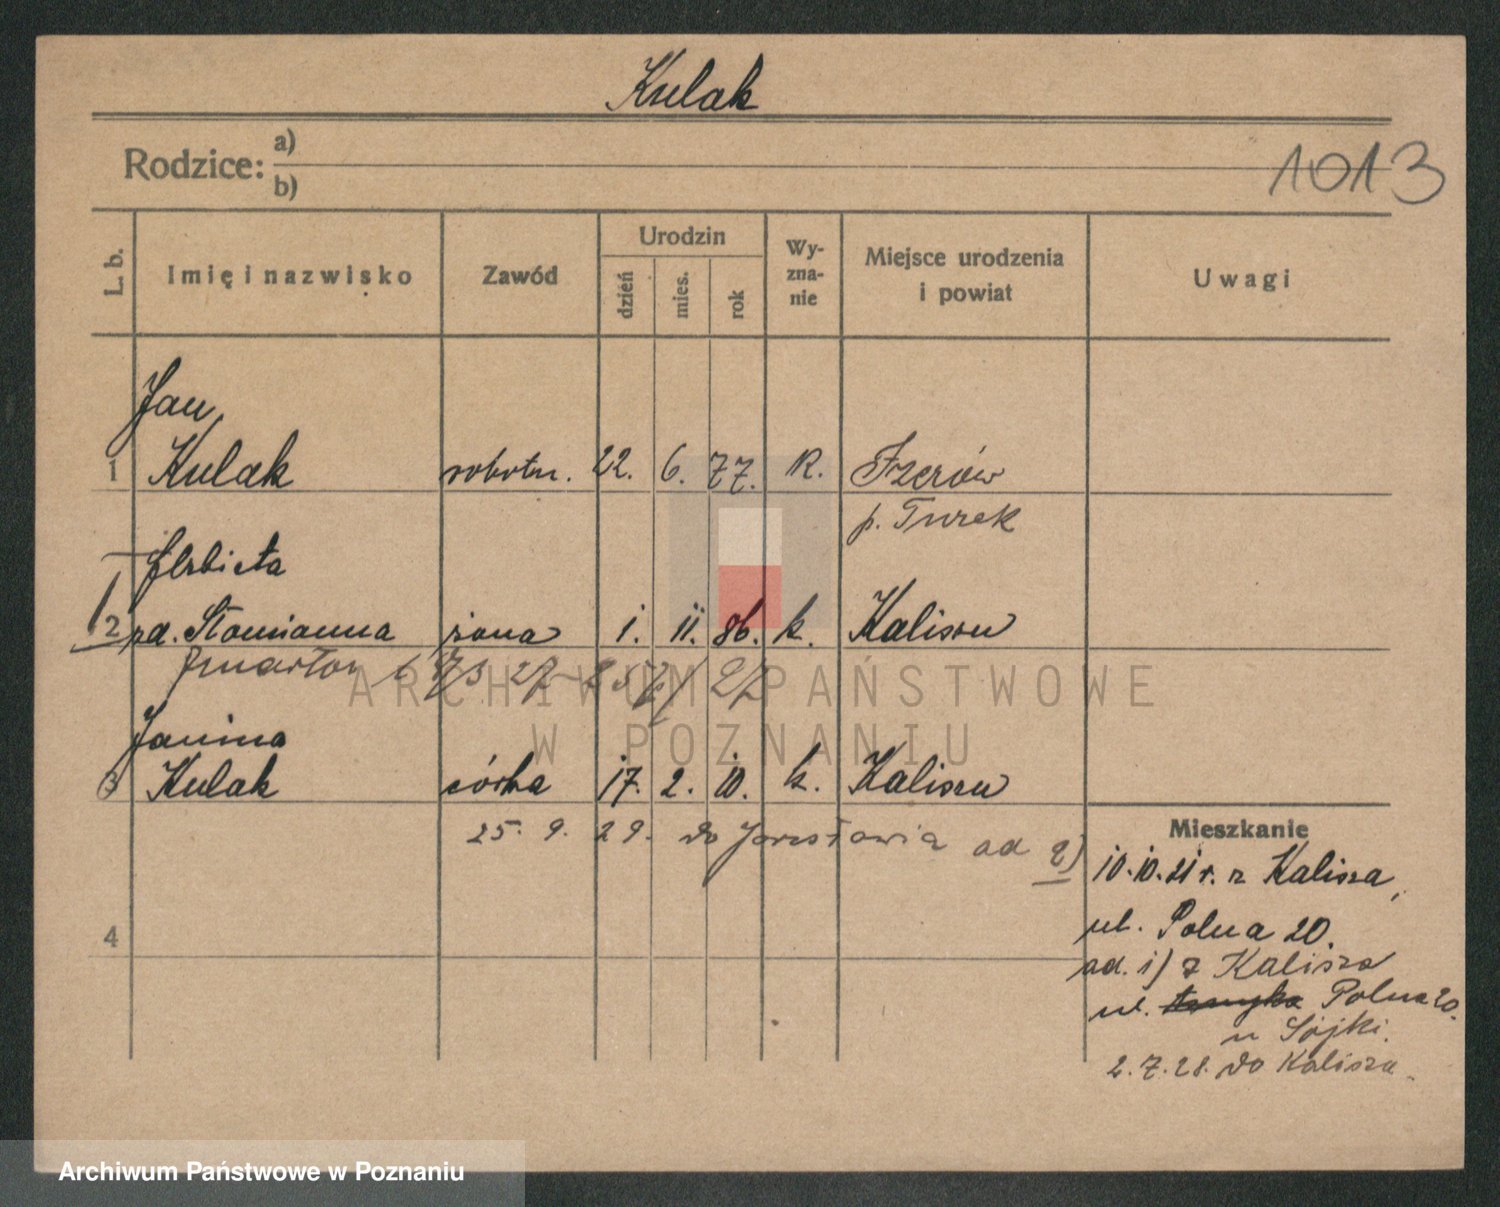 Kulak
Rodzice: a)
b)
1013
L. b.
Imię i nazwisko
Zawód
Urodzin
dzień
mies.
rok
Wy-
zna-
nie
Miejsce urodzenia
i powiat
Uwagi
Jan
1 Kulak robotn. 22. 6. 77. R.
p. Turek
Elżbieta
2 zd. Słomianna żona 1. 11. 86. k. Kalisz
ARCHIWUM PAŃSTWOWE
W POZNANIU
Janina
3 Kulak córka 17. 2. 10. k. Kalisz
25. 9. 29. do ad 2)
Mieszkanie
10.10.21 r. z Kalisza,
ul. Polna 20.
4
ad. 1) z Kalisza
ul. Polna 20.
u Sójki.
2.7.28. do Kalisza.
Archiwum Państwowe w Poznaniu